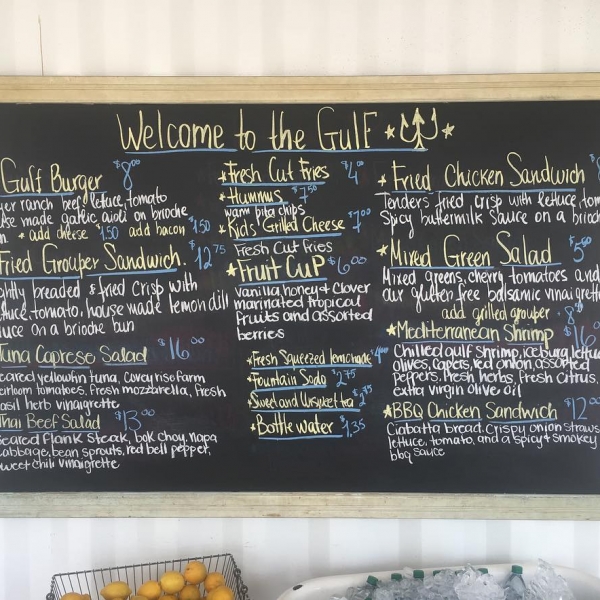 Welcome to the Gulf
Gulf Burger $8.00
ranch beef, lettuce, tomato
made garlic aioli on brioche
* add cheese $1.50 add bacon $1.50
Fried Grouper Sandwich. $12.75
breaded & fried crisp with
tomato, house made lemon dill
on a brioche bun
Tuna Caprese Salad $16.00
Seared yellowfin tuna, Covey rise farm
heirloom tomatoes, fresh mozzarella, fresh
basil herb vinaigrette
Thai Beef Salad $13.00
Seared Flank Steak, bok choy, napa
cabbage, bean sprouts, red bell pepper,
sweet chili vinaigrette
*Fresh Cut Fries $4.00
*Hummus $7.50
warm pita chips
*Kids Grilled Cheese $7.00
Fresh Cut fries
*Fruit Cup $6.00
vanilla honey & Clover
marinated tropical
fruits and assorted
berries
*Fresh Squeezed lemonade $4.00
*Fountain Soda $2.75
*Sweet and Unsweet tea
*Bottle water $1.35
*Fried Chicken Sandwich $8
Tenders fried crisp with lettuce, tom
Spicy buttermilk Sauce on a brioch
*Mixed Green Salad $5.00
Mixed greens, cherry tomatoes and
our gluten free balsamic vinaigrette
add grilled grouper $8
*Mediterranean Shrimp $16
Chilled gulf shrimp, iceburg lettuc
olives, capers, red onion, assorted
peppers, fresh herbs, fresh citrus,
extra virgin olive oil
*BBQ Chicken Sandwich $12.00
Ciabatta bread, crispy onion straws
lettuce, tomato, and a spicy & smokey
bbq sauce